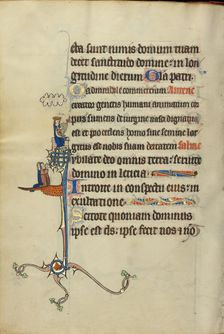 sta sunt nimis domum tuam
decet sanctitudo domine in lon
gitudine dierum Gloria patri
O admirabile commercium Antene
creator generis humani animatum cor
pus sumens de virgine nasci dignatus
est et procedens homo sine semine lar
gitus est nobis suam deitatem
bilate deo omnis terra servite
domino in leticia
Introite in conspectu eius in
exultatione
Scitote quoniam dominus
ipse est deus ipse fecit nos et nō